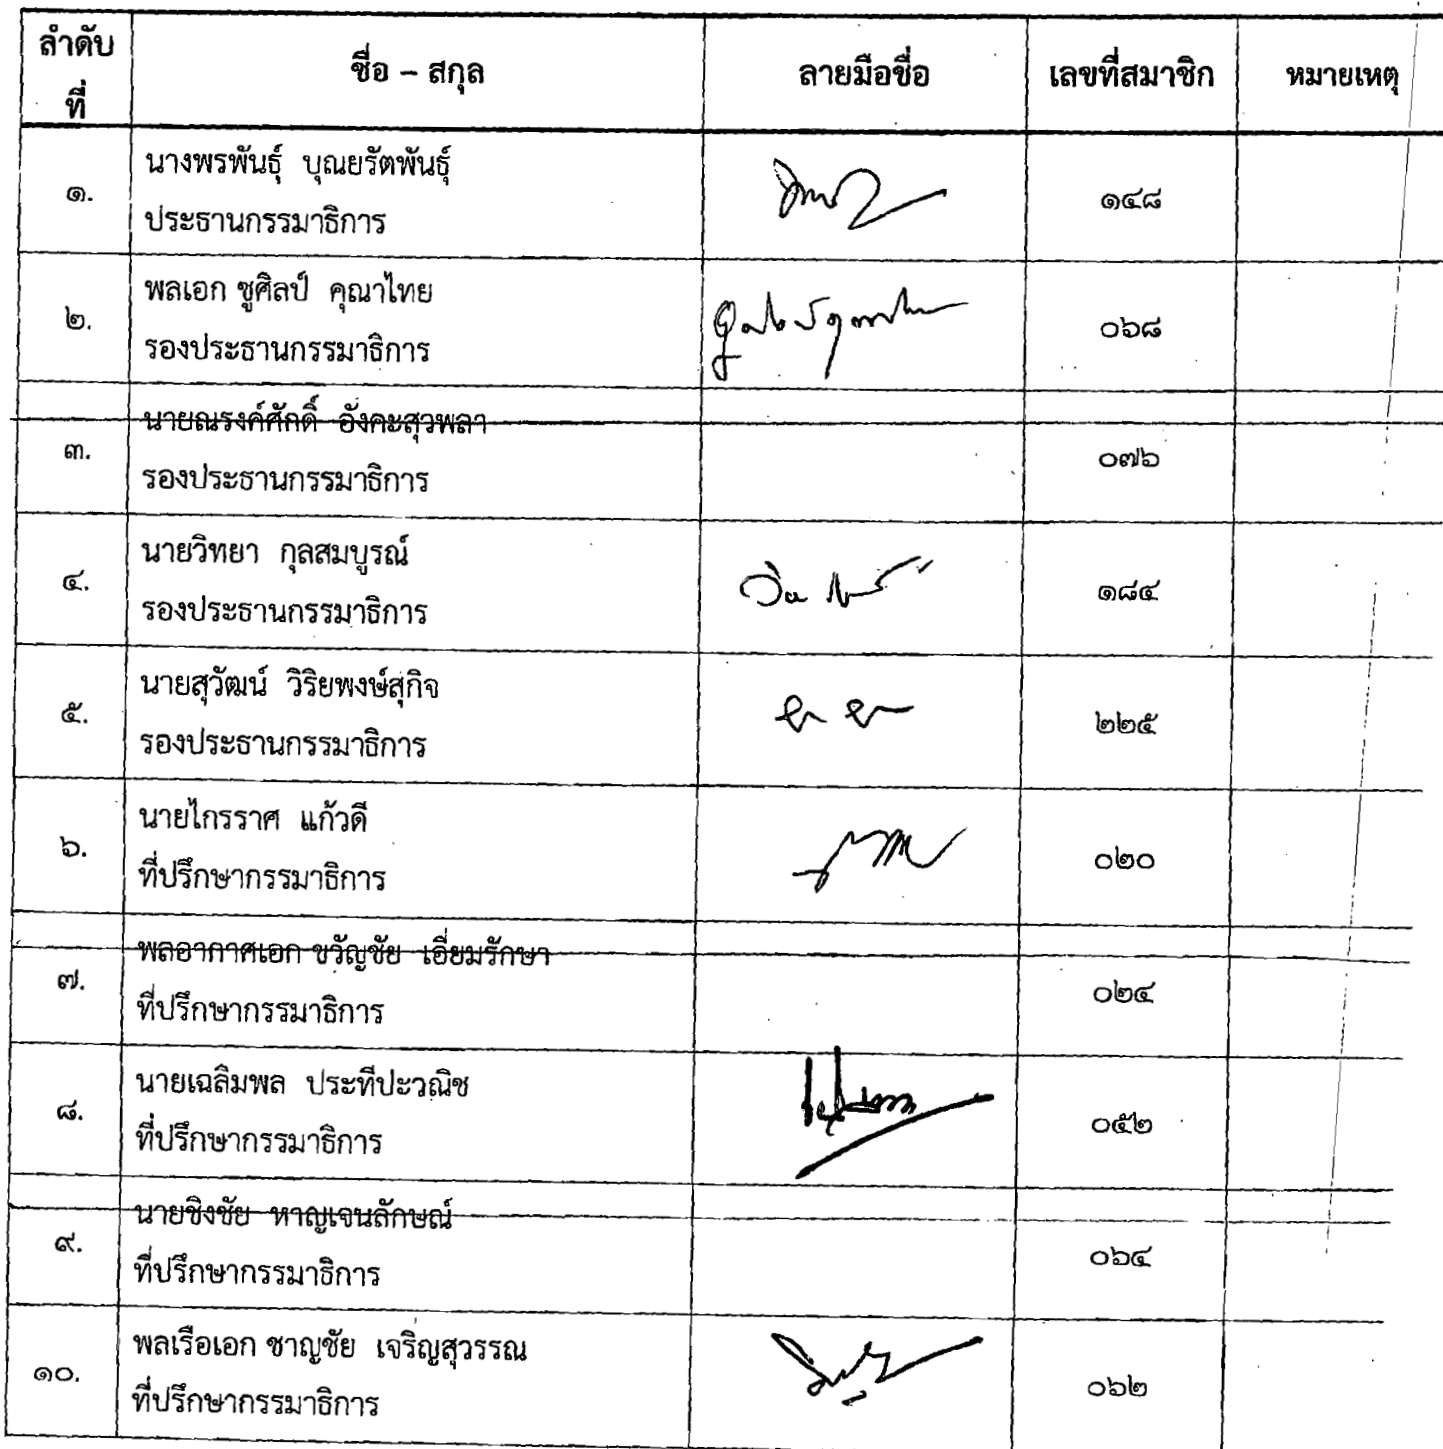 ลำดับ
ที่
ชื่อ – สกุล
ลายมือชื่อ
เลขที่สมาชิก
หมายเหตุ
๑.
นางพรพันธุ์ บุณยรัตพันธุ์
ประธานกรรมาธิการ
๑๔๘
๒.
พลเอก ชูศิลป์ คุณาไทย
รองประธานกรรมาธิการ
๐๖๘
๓.
นายณรงค์ศักดิ์ อังคะสุวพลา
รองประธานกรรมาธิการ
๐๗๖
๔.
นายวิทยา กุลสมบูรณ์
รองประธานกรรมาธิการ
๑๘๔
๕.
นายสุวัฒน์ วิริยพงษ์สุกิจ
รองประธานกรรมาธิการ
๒๒๕
๖.
นายไกรราศ แก้วดี
ที่ปรึกษากรรมาธิการ
๐๒๐
๗.
พลอากาศเอก ขวัญชัย เอี่ยมรักษา
ที่ปรึกษากรรมาธิการ
๐๒๔
๘.
นายเฉลิมพล ประทีปะวณิช
ที่ปรึกษากรรมาธิการ
๐๕๒
๙.
นายชิงชัย หาญเจนลักษณ์
ที่ปรึกษากรรมาธิการ
๐๖๔
๑๐.
พลเรือเอก ชาญชัย เจริญสุวรรณ
ที่ปรึกษากรรมาธิการ
๐๖๒